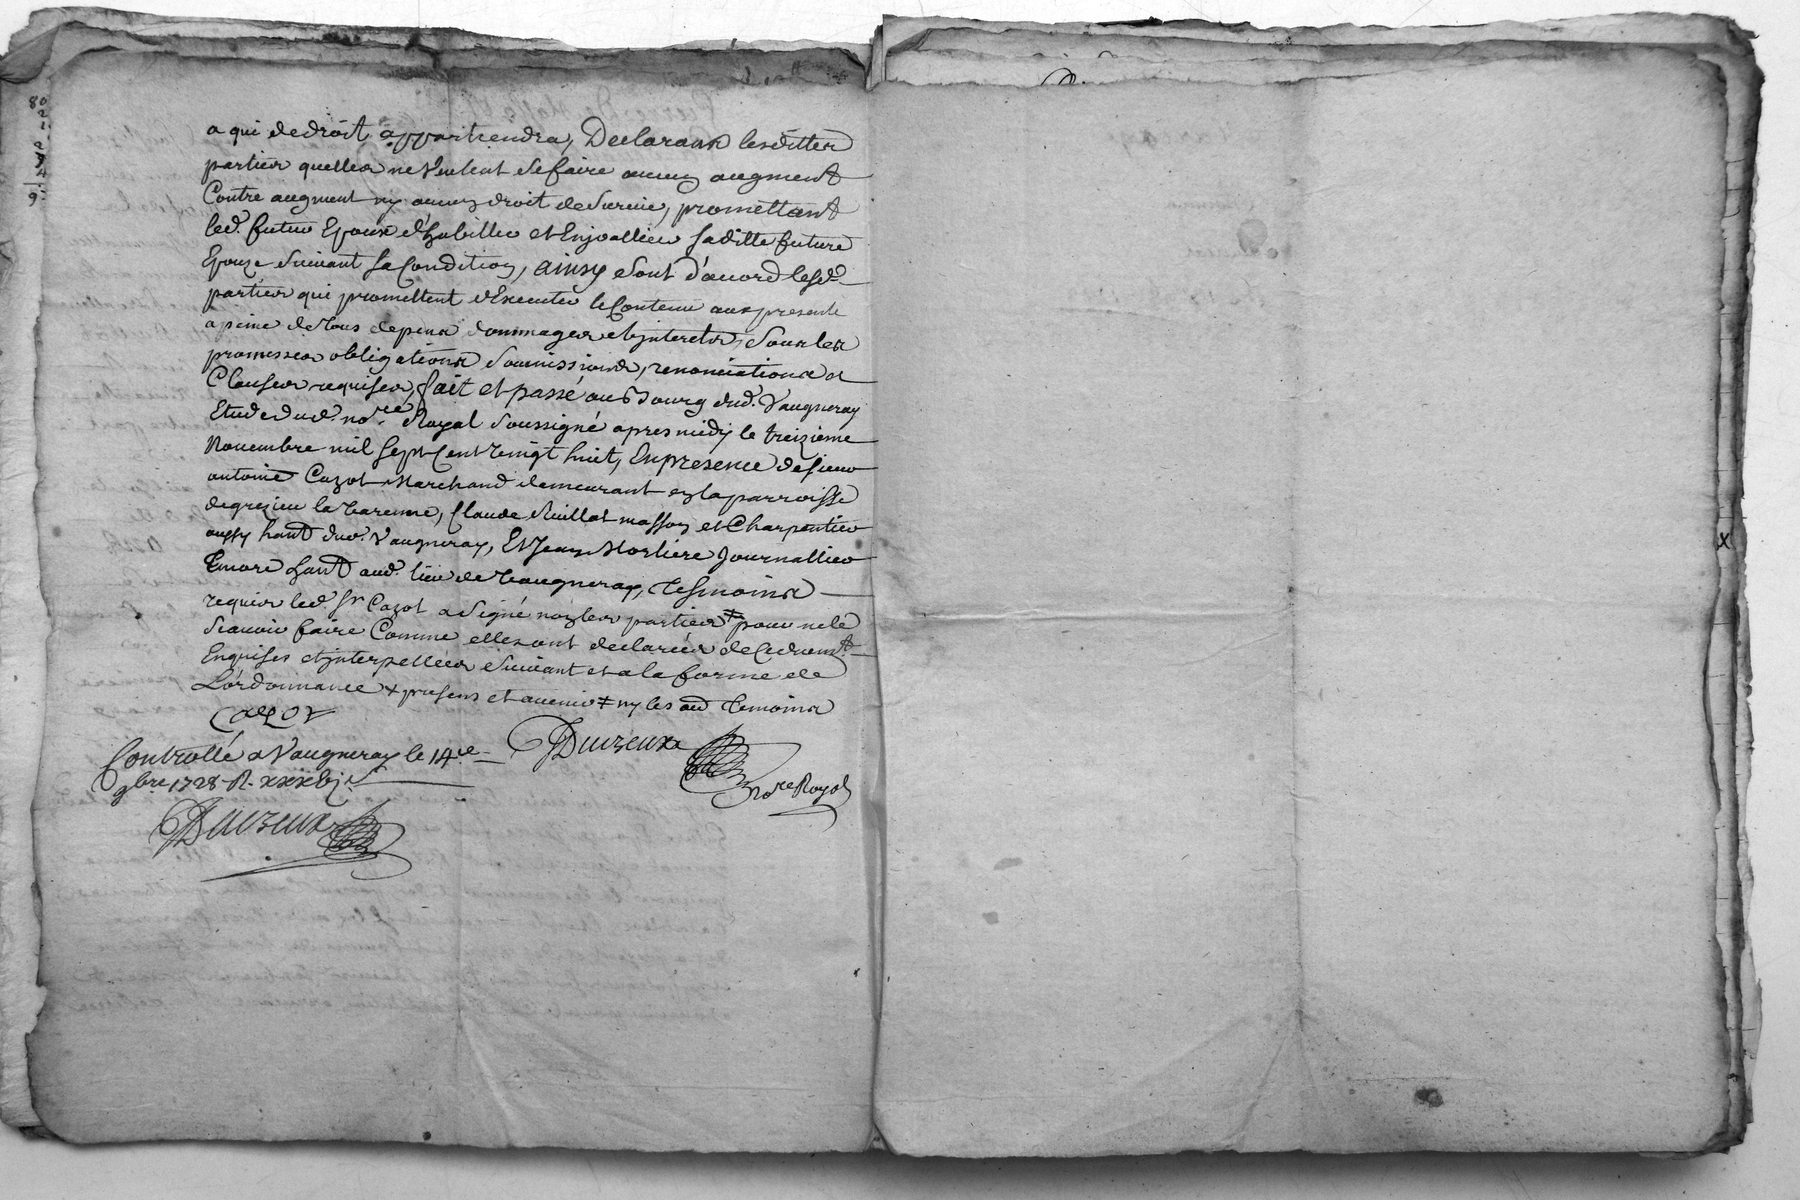 a qui de droit appartiendra, Declarant lesdittes
parties quelles ne Veulent se faire aucun augment
Contre augment ny aucun droit de survie, promettant
led. futur Epoux d'habiller et Enjoallier saditte future
Epouze suivant sa Condition, ainsy sont d'acord lesd.
parties qui promettent d'Executer le Contenu aux presente
a peine de tous depens dommages et interets, sous les
promesses obligations soumissions, renonciations et
Clauses requises, fait et passé au Bourg dud. Vaugneray
Etude dud. nore. Royal soussigné apres midy le treizieme
Novembre mil sept Cent vingt huit, En presence de sieur
antoine Cazot Marchand demeurant en la parroisse
de grezieu la varenne, Claude masson et Charpentier
aussy hant dud. Vaugneray, Et Jean Morliere Journallier
Encore hant aud. lieu de vaugneray, tesmoins
requis led. sr Cazot a signé non les parties ‡ pour ne le
scavoir faire Comme elles ont declarées de Ce duemt.
Enquises et interpellées suivant et a la forme de
L'ordonnance + presens et avenir ‡ ny les aud temoins
Cazot
Controllé a Vaugneray le 14e
9bre 1728 R.
Nore Royal